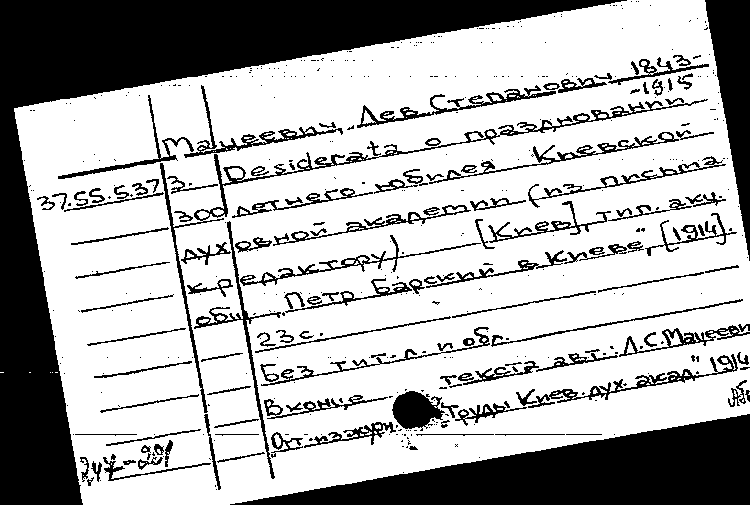 Мацеевич, Лев Степанович, 1843-
-1915
37.55.5.373. Desiderata о праздновании
300 летнего юбилея Киевской
духовной академии (из письма
к редактору) [Киев], тип. акц.
общ. „Петр Барский в Киеве", [1914].
23 с.
Без тит. л. и обл.
В конце текста авт.: Л.С. Мацеевич
Отт. из журн. "Труды Киев. дух. акад." 1914
247-201